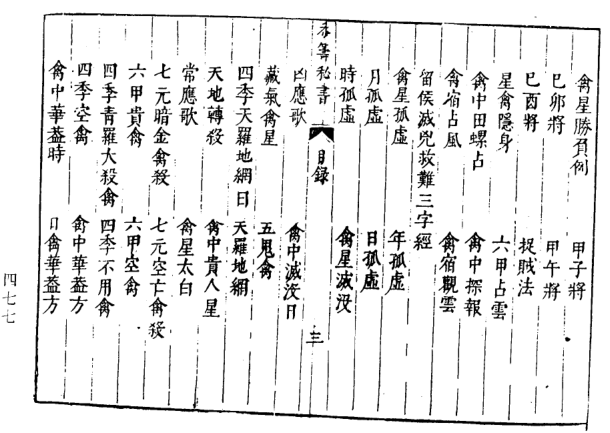 禽星勝負例 甲子將
巳卯將 甲午將
巳酉將 捉賊法
星禽隱身 六甲占雲
禽中田螺占 禽中探報
禽宿占風 禽宿觀雲
留侯滅兇救難三字經
禽星孤虛 年孤虛
月孤虛 日孤虛
時孤虛 禽星滅没
秘書 目錄 三
凶應歌 禽中滅没日
藏氣禽星 五鬼禽
四季天羅地網日 天羅地網
天地轉殺 禽中貴人星
常應歌 禽星太白
七元暗金禽殺 七元空亡禽殺
六甲貴禽 六甲空禽
四季青羅大殺禽 四季不用禽
四季空禽 禽中華蓋方
禽中華蓋時 日禽華蓋方
四七七